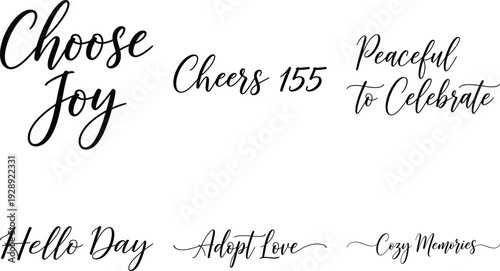 Choose
Joy
Cheers 155
Peaceful
to Celebrate
Hello Day
Adopt Love
Cozy Memories
Adobe Stock | #1928922331